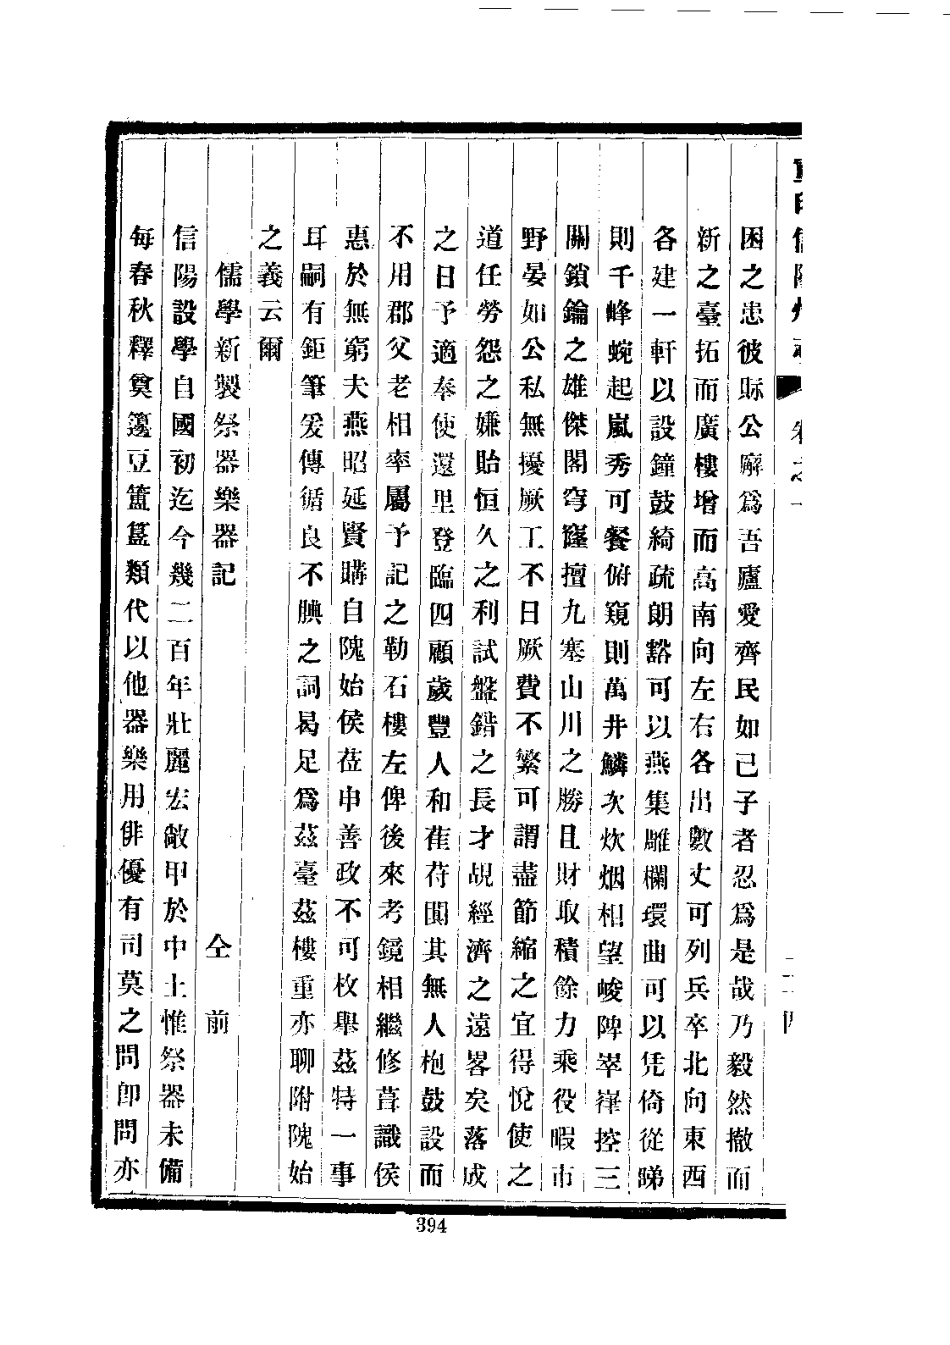 困之患彼眎公廨爲吾廬愛齊民如己子者忍爲是哉乃毅然撤而
新之臺拓而廣樓增而高南向左右各出數丈可列兵卒北向東西
各建一軒以設鐘鼓綺疏朗豁可以燕集雕欄環曲可以凭倚從睇
則千峰蜿起嵐秀可餐俯窺則萬井鱗次炊烟相望峻陴崒嵂控三
關鎖鑰之雄傑閣穹窿擅九塞山川之勝且財取積餘力乘役暇市
野晏如公私無擾厥工不日厥費不繁可謂盡節縮之宜得悅使之
道任勞怨之嫌貽恒久之利試盤錯之長才覘經濟之遠畧矣落成
之日予適奉使還里登臨四顧歲豐人和萑苻聞其無人枹鼓設而
不用郡父老相率屬予記之勒石樓左俾後來考鏡相繼修葺識侯
惠於無窮夫燕昭延賢購自隗始侯莅申善政不可枚舉茲特一事
耳嗣有鉅筆爰傳循良不腆之詞曷足爲茲臺茲樓重亦聊附隗始
之義云爾
儒學新製祭器樂器記 仝前
信陽設學自國初迄今幾二百年壯麗宏敞甲於中土惟祭器未備
每春秋釋奠籩豆簠簋類代以他器樂用俳優有司莫之問卽問亦
394